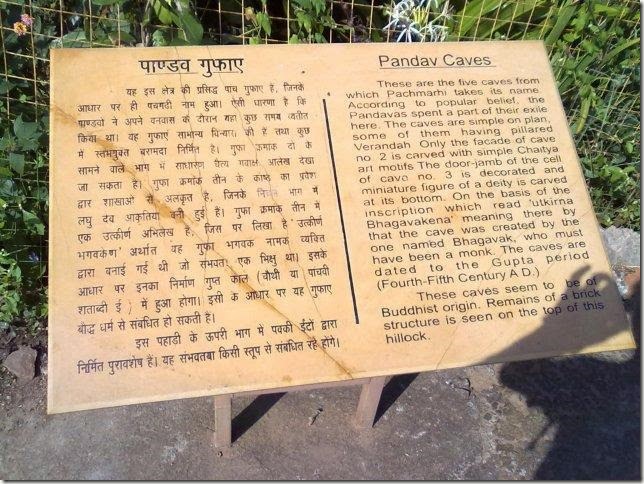 पाण्डव गुफाए
यह इस क्षेत्र की प्रसिद्ध पाच गुफाए है, जिनके
आधार पर ही पचमढी नाम हुआ। ऐसी धारणा है कि
पाण्डवो ने अपने वनवास के दौरान यहा कुछ समय व्यतीत
किया था। यह गुफाए सामान्य विन्यास की है तथा कुछ
में स्तंभयुक्त बरामदा निर्मित है। गुफा क्रमांक दो के
सामने वाले भाग में साधारण चैत्य गवाक्ष आलेख देखा
जा सकता है। गुफा क्रमांक तीन के काष्ठ का प्रवेश
द्वार शाखाओं से अलंकृत है, जिनके निचले भाग में
लघु देव आकृतिया बनी हुई है। गुफा क्रमांक तीन में
एक उत्कीर्ण अभिलेख है, जिस पर लिखा है 'उत्कीर्ण
भगवकेण' अर्थात यह गुफा भगवक नामक व्यक्ति
द्वारा बनाई गई थी जो संभवतः एक भिक्षु था। इसके
आधार पर इनका निर्माण गुप्त काल (चौथी या पांचवी
शताब्दी ई.) में हुआ होगा। इसी के आधार पर यह गुफाए
बौद्ध धर्म से संबंधित हो सकती है।
इस पहाडी के ऊपरी भाग में पक्की ईंटो द्वारा
निर्मित पुरावशेष हैं। यह संभवतया किसी स्तूप से संबंधित रहे होंगे।
Pandav Caves
These are the five caves from
which Pachmarhi takes its name.
According to popular belief, the
Pandavas spent a part of their exile
here. The caves are simple on plan,
some of them having pillared
Verandah. Only the facade of cave
no. 2 is carved with simple Chaitya
art motifs The door-jamb of the cell
of cave no. 3 is decorated and
miniature figure of a deity is carved
at its bottom. On the basis of the
inscription which read 'utkirna
Bhagavakena' meaning there by
that the cave was created by the
one named Bhagavak, who must
have been a monk. The caves are
dated to the Gupta period
(Fourth-Fifth Century A D.)
These caves seem to be of
Buddhist origin. Remains of a brick
structure is seen on the top of this
hillock.